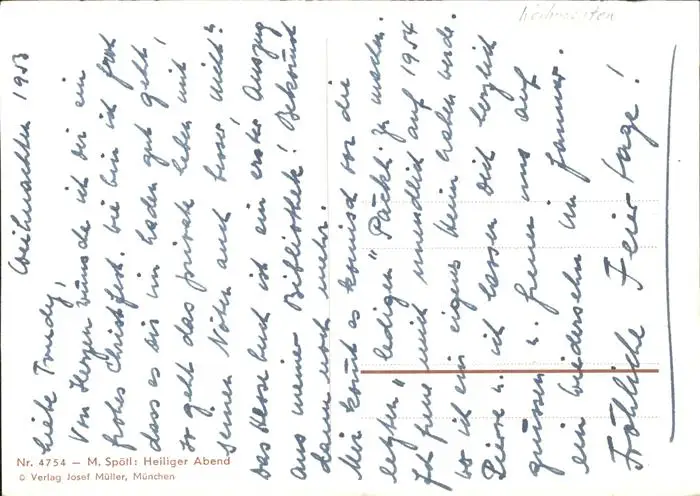 Weihnachten
Weihnachten 1953
Liebe Trudy,
Von Herzen wünsche ich dir ein
frohes Christfest. Wie bin ich froh
dass es dir im Laden gut geht,
so geht das private Leben mit
seinen Nöten auch besser, nicht?
Das Hesse buch ist ein erster Auszug
aus meiner Bibliothek! Bekommst
dann noch mehr.
Mir kommt es komisch vor die
letzten "ledigen" Päckli zu machen.
Ich freue mich unendlich auf 1954
wo ich ein eigenes Heim haben werde.
Pierre u. ich lassen dich herzlich
grüssen u. freuen uns auf
ein Wiedersehn im Januar.
Fröhliche Feiertage!
Nr. 4754 — M. Spötl: Heiliger Abend
© Verlag Josef Müller, München